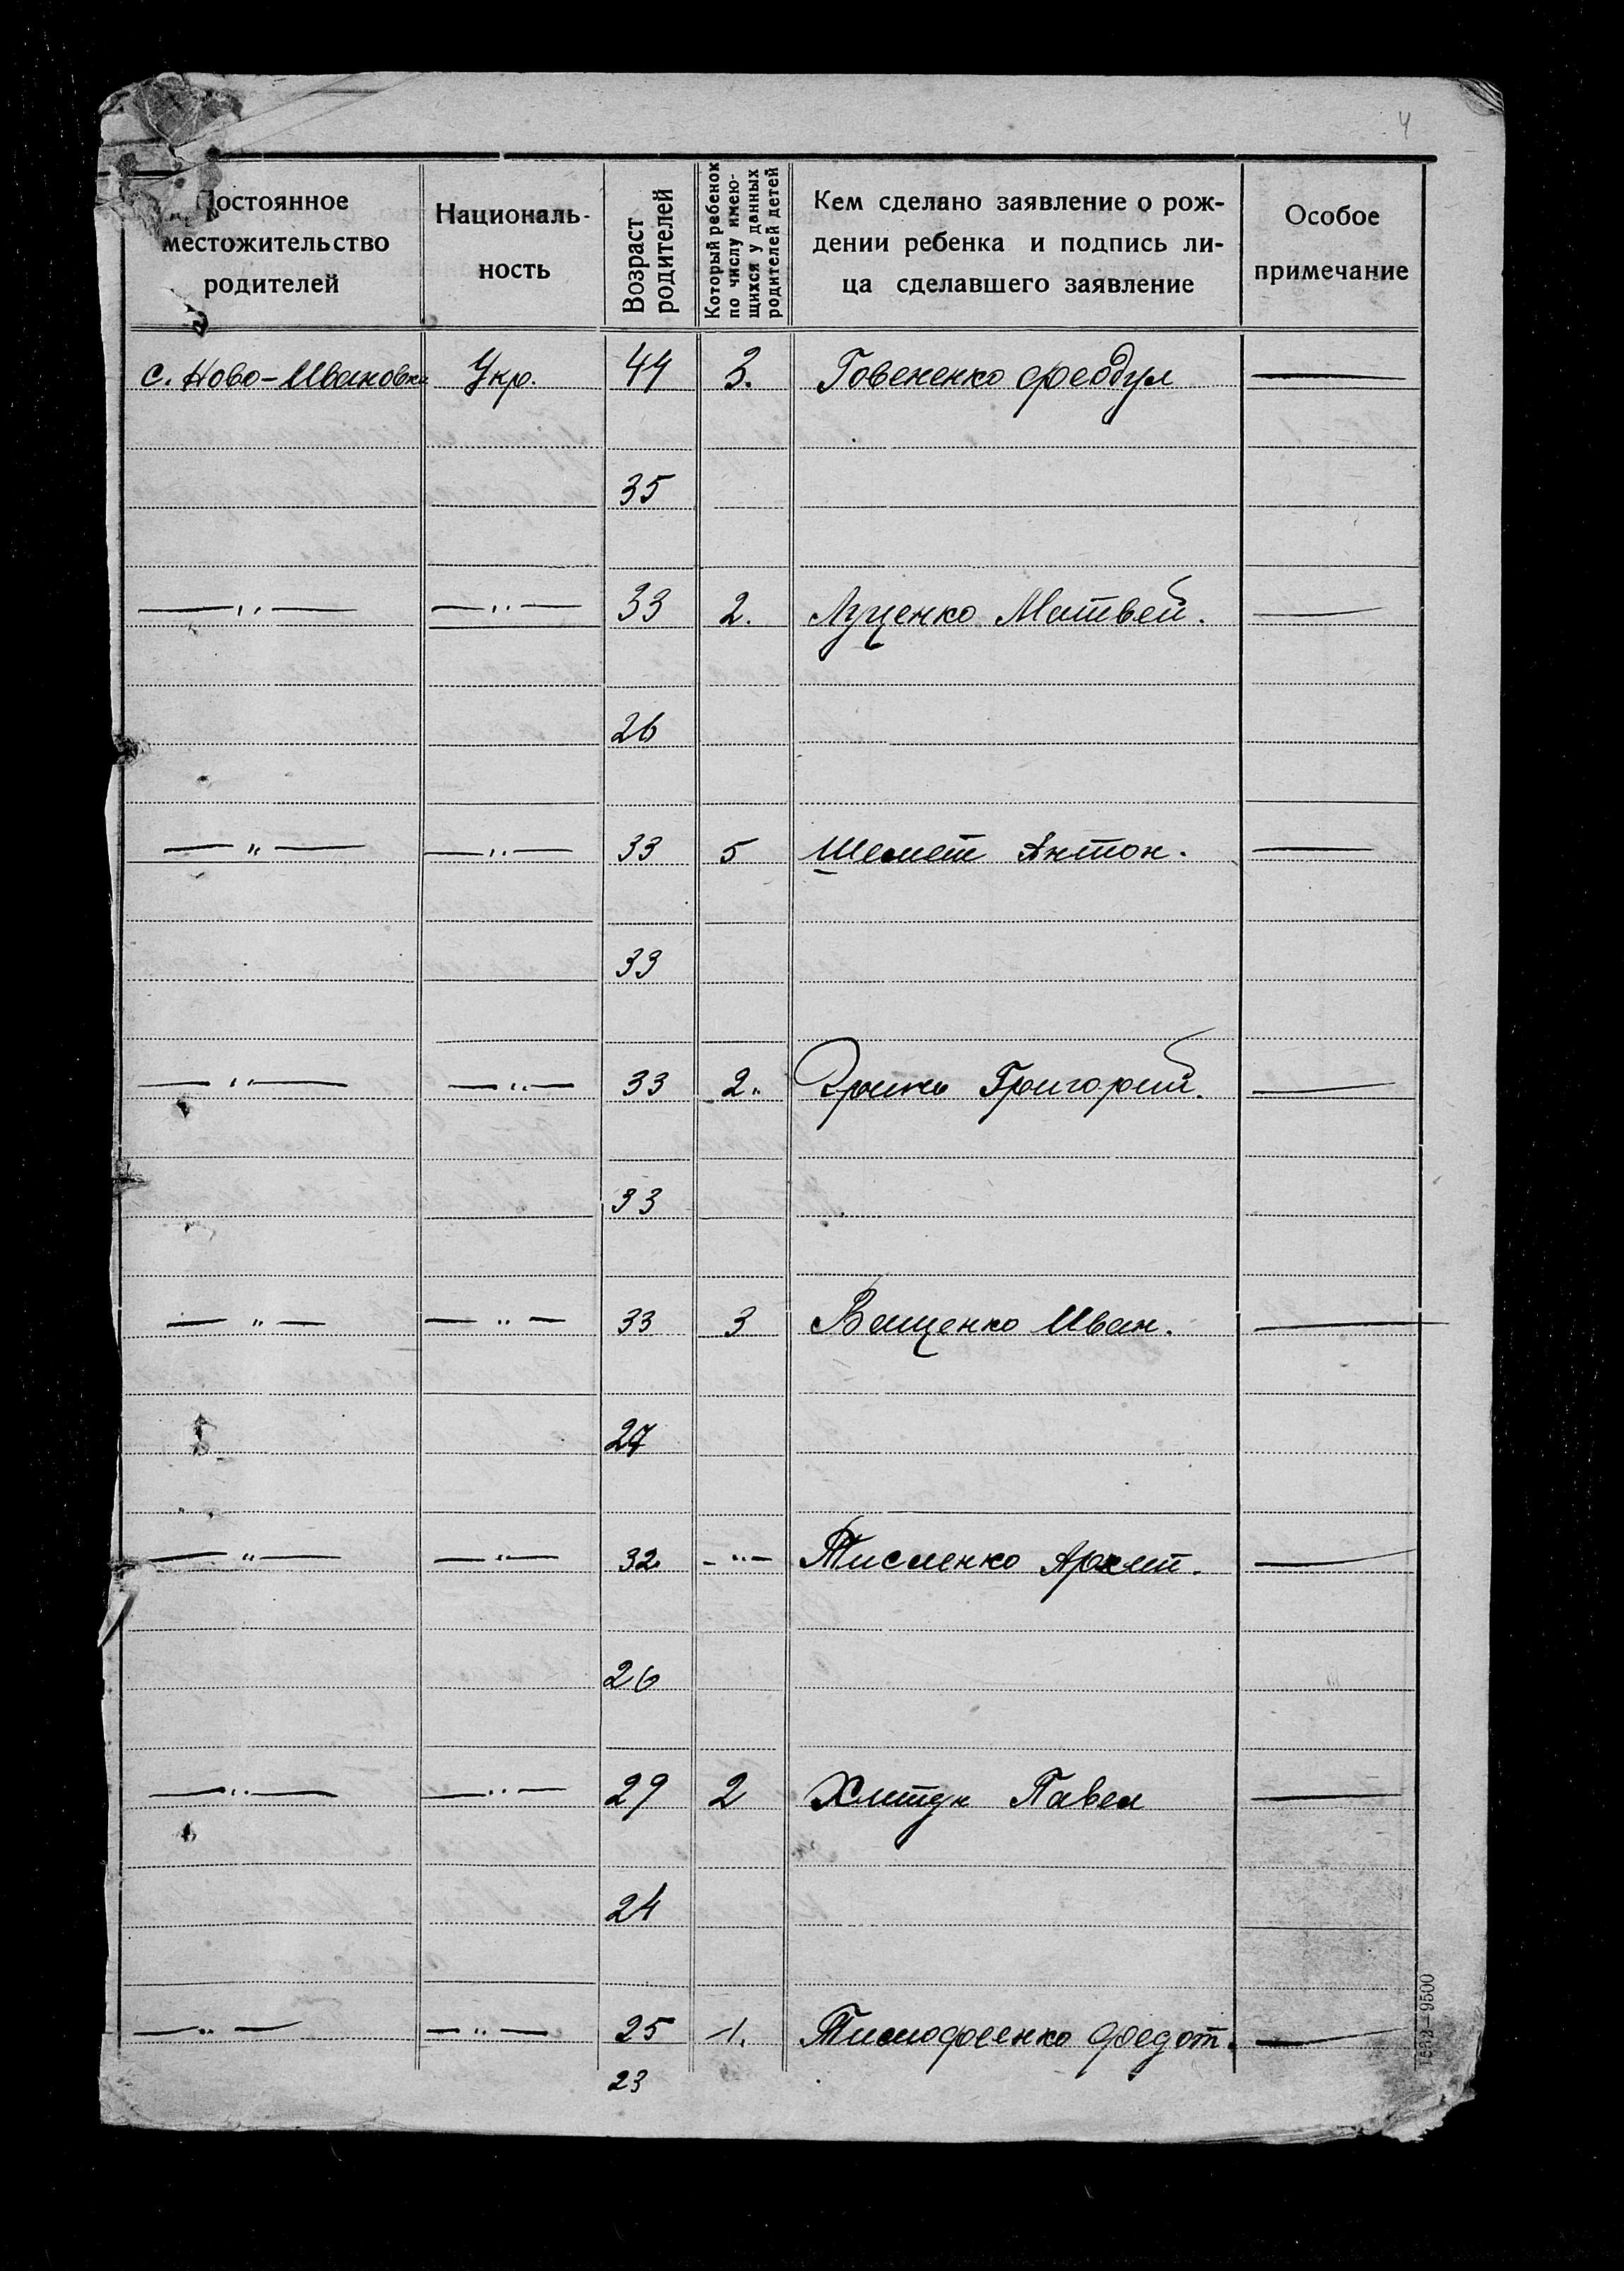 4
Постоянное местожительство родителей | Националь- ность | Возраст родителей | Который ребенок по числу имею- щихся у данных родителей детей | Кем сделано заявление о рож- дении ребенка и подпись ли- ца сделавшего заявление | Особое примечание
с. Ново-Ивановка Укр. 44 3. Говененко Феодул —
35
— " — — " — 33 2. Луценко Матвей. —
26
— " — — " — 33 5 Шемет Антон. —
33
— " — — " — 33 2. Григорий. —
33
— " — — " — 33 3 Ващенко Иван. —
27
— " — — " — 32 - " - Тисленко —
26
— " — — " — 29 2 Павел —
24
— " — — " — 25 1. Тимофеенко Федот. —
23
1532—9500